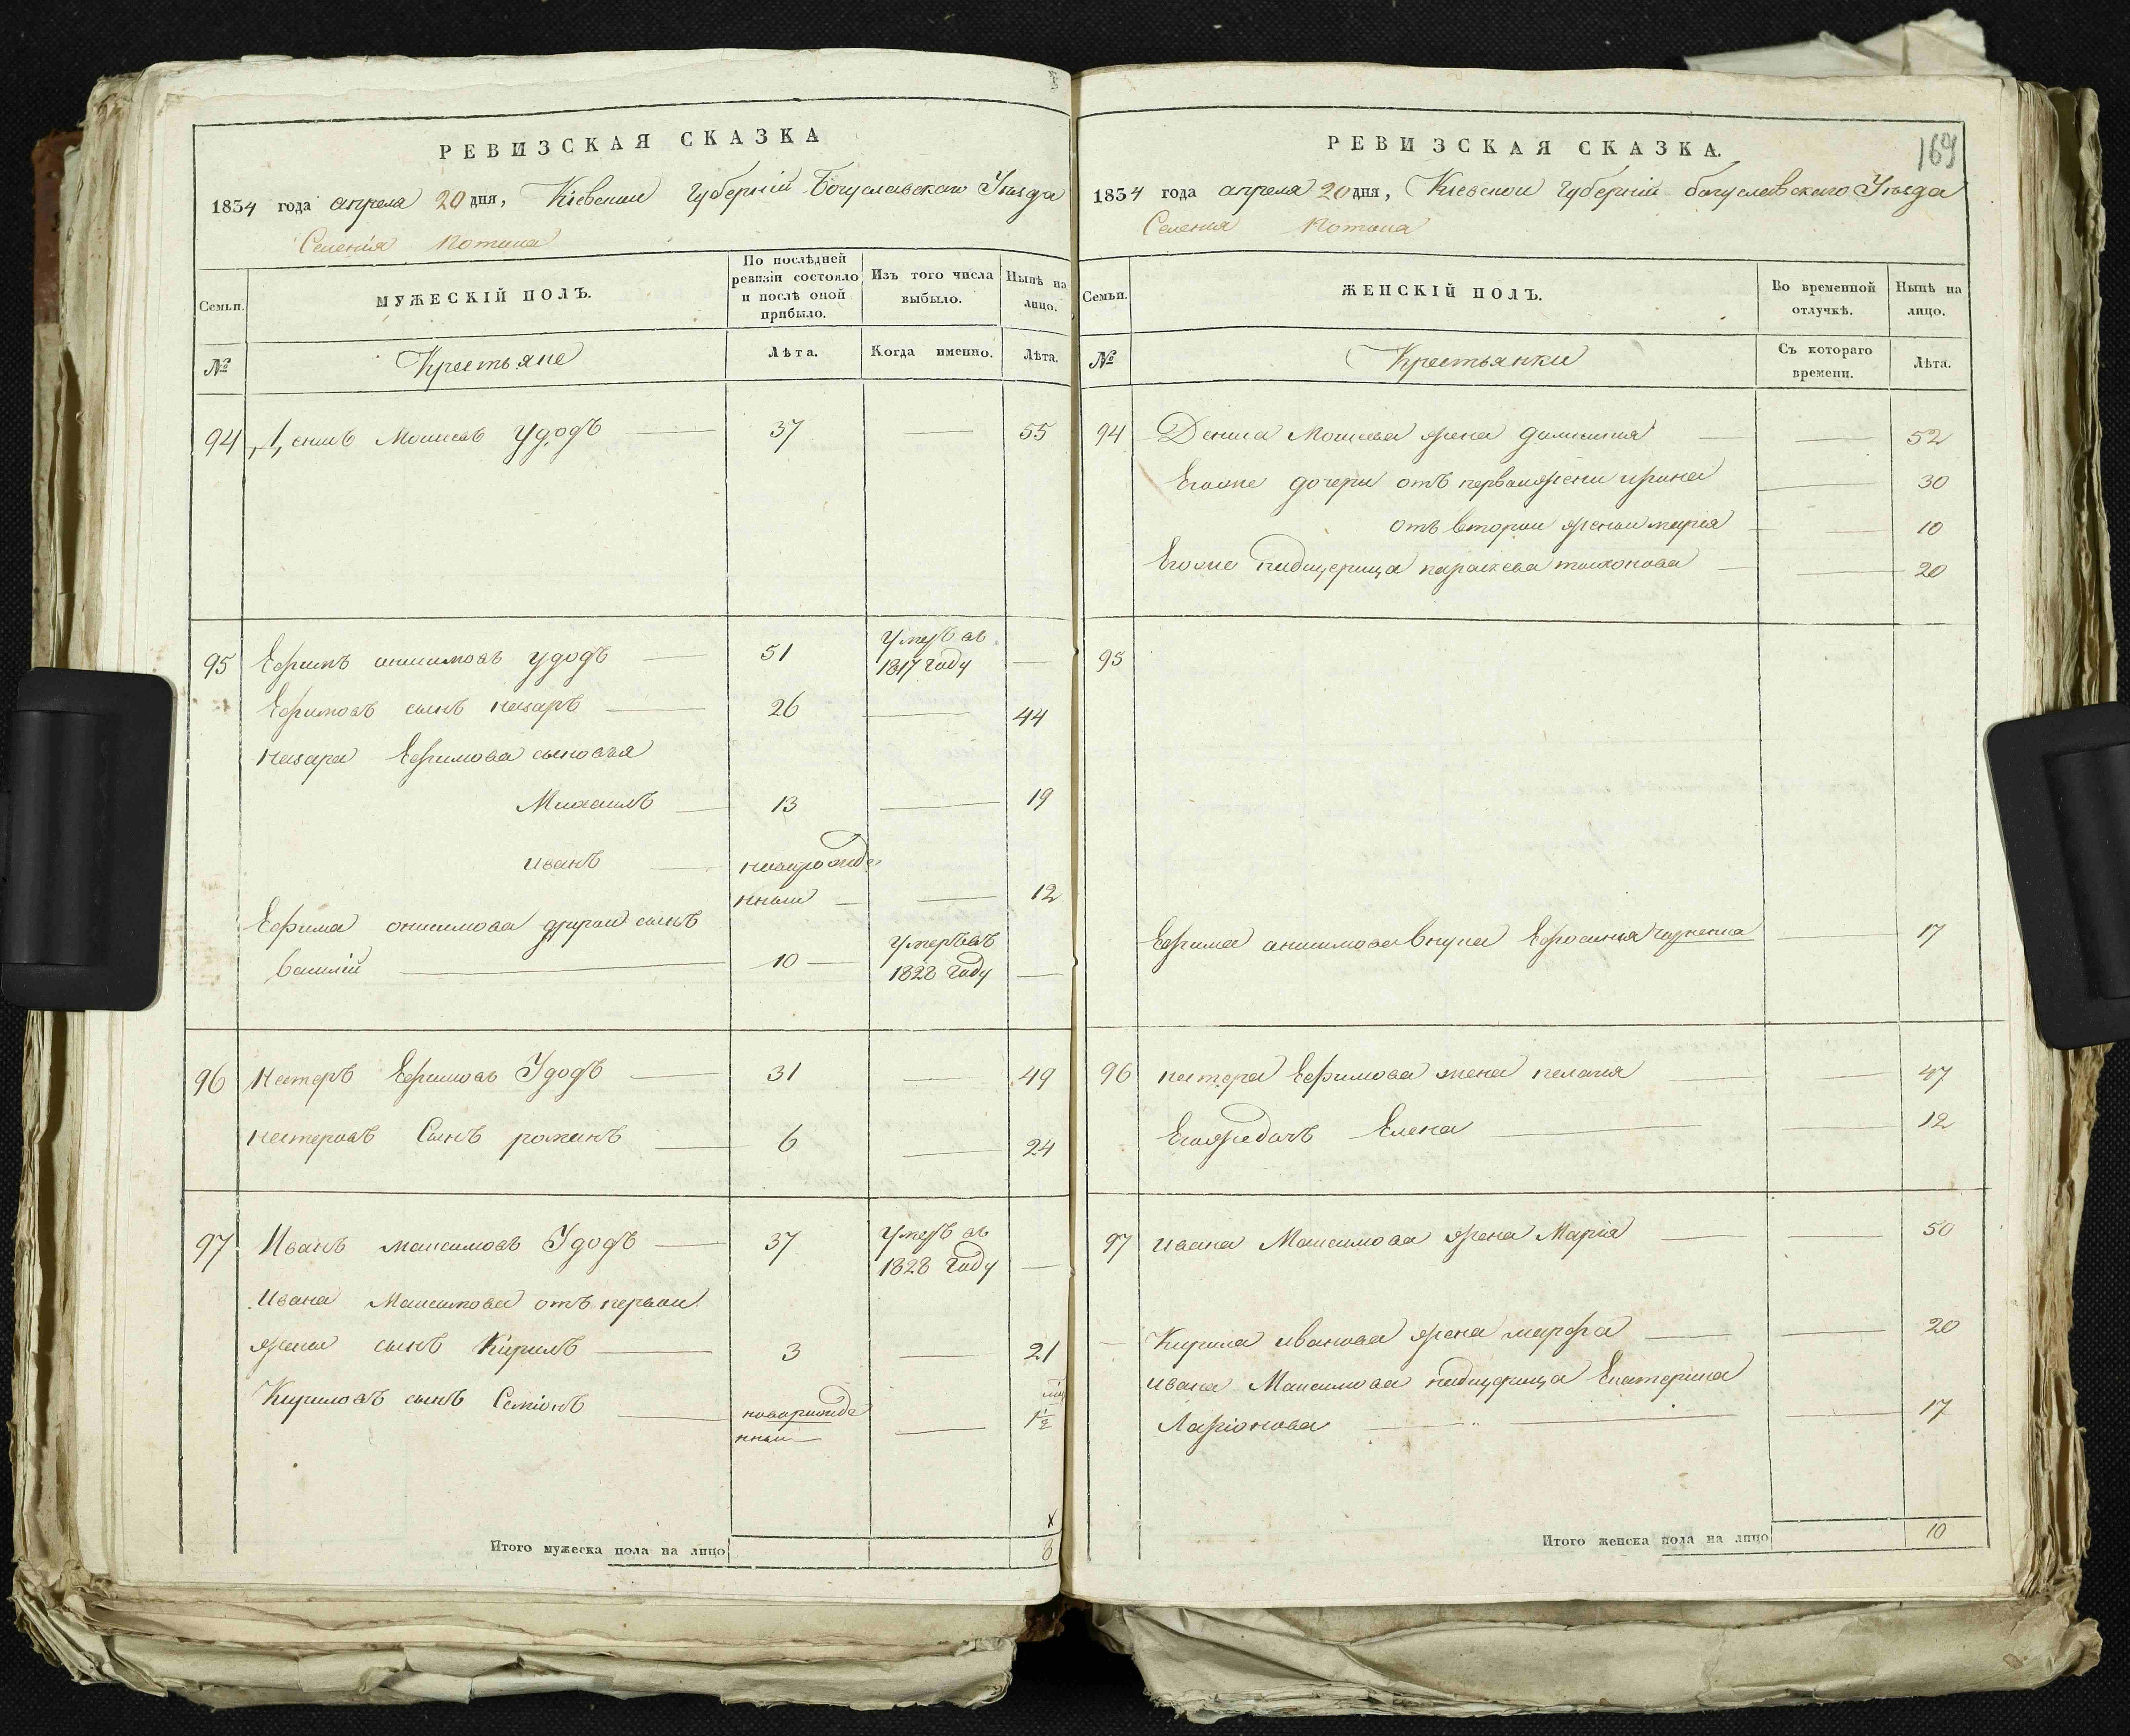 РЕВИЗСКАЯ СКАЗКА
1834 года апреля 20 дня, Кіевской Губерній Богуславскаго Уѣзда
Селенія
Семьи.
МУЖЕСКІЙ ПОЛЪ.
По послѣдней ревизіи состояло и послѣ оной прибыло.
Изъ того числа выбыло.
Нынѣ на лицо.
№
Крестьяне
Лѣта.
Когда именно.
Лѣта.
94 Денисъ Моисеевъ Удодъ 37 55
95 Ефимъ онисимовъ удодъ 51 Умеръ въ 1817 году
Ефимовъ сынъ назаръ 26 44
назара Ефимова сыновья
Михаилъ 13 19
иванъ новорожде
нный 12
Ефима онисимова другой сынъ
Василій 10 Умеръ въ 1828 году
96 Нестеръ Ефимовъ Удодъ 31 49
нестеровъ Сынъ романъ 6 24
97 Иванъ максимовъ Удодъ 37 Умеръ въ 1828 году
Ивана Максимова отъ первой
жены сынъ Кирилъ 3 21
Кириловъ сынъ Семіонъ новорожде
нный 1½
Итого мужеска пола на лицо 8
РЕВИЗСКАЯ СКАЗКА.
169
1834 года апреля 20 дня, Кіевской Губерній богуславскаго Уѣзда
Селенія
Семьи.
ЖЕНСКІЙ ПОЛЪ.
Во временной отлучкѣ.
Нынѣ на лицо.
№
Крестьянки
Съ котораго времени.
Лѣта.
94 Дениса Моисеева жена 52
Егоже дочери отъ первой жены ирина 30
отъ второй жены марія 10
Егоже падщерица параскева 20
95
Ефима онисимова внука Ефросинія 17
96 нестера Ефимова жена пелагия 47
Егоже дочь Елена 12
97 ивана Максимова жена Марія 50
Кирила иванова жена марфа 20
ивана Максимова падщерица Екатерина
Ларіонова 17
Итого женска пола на лицо 10